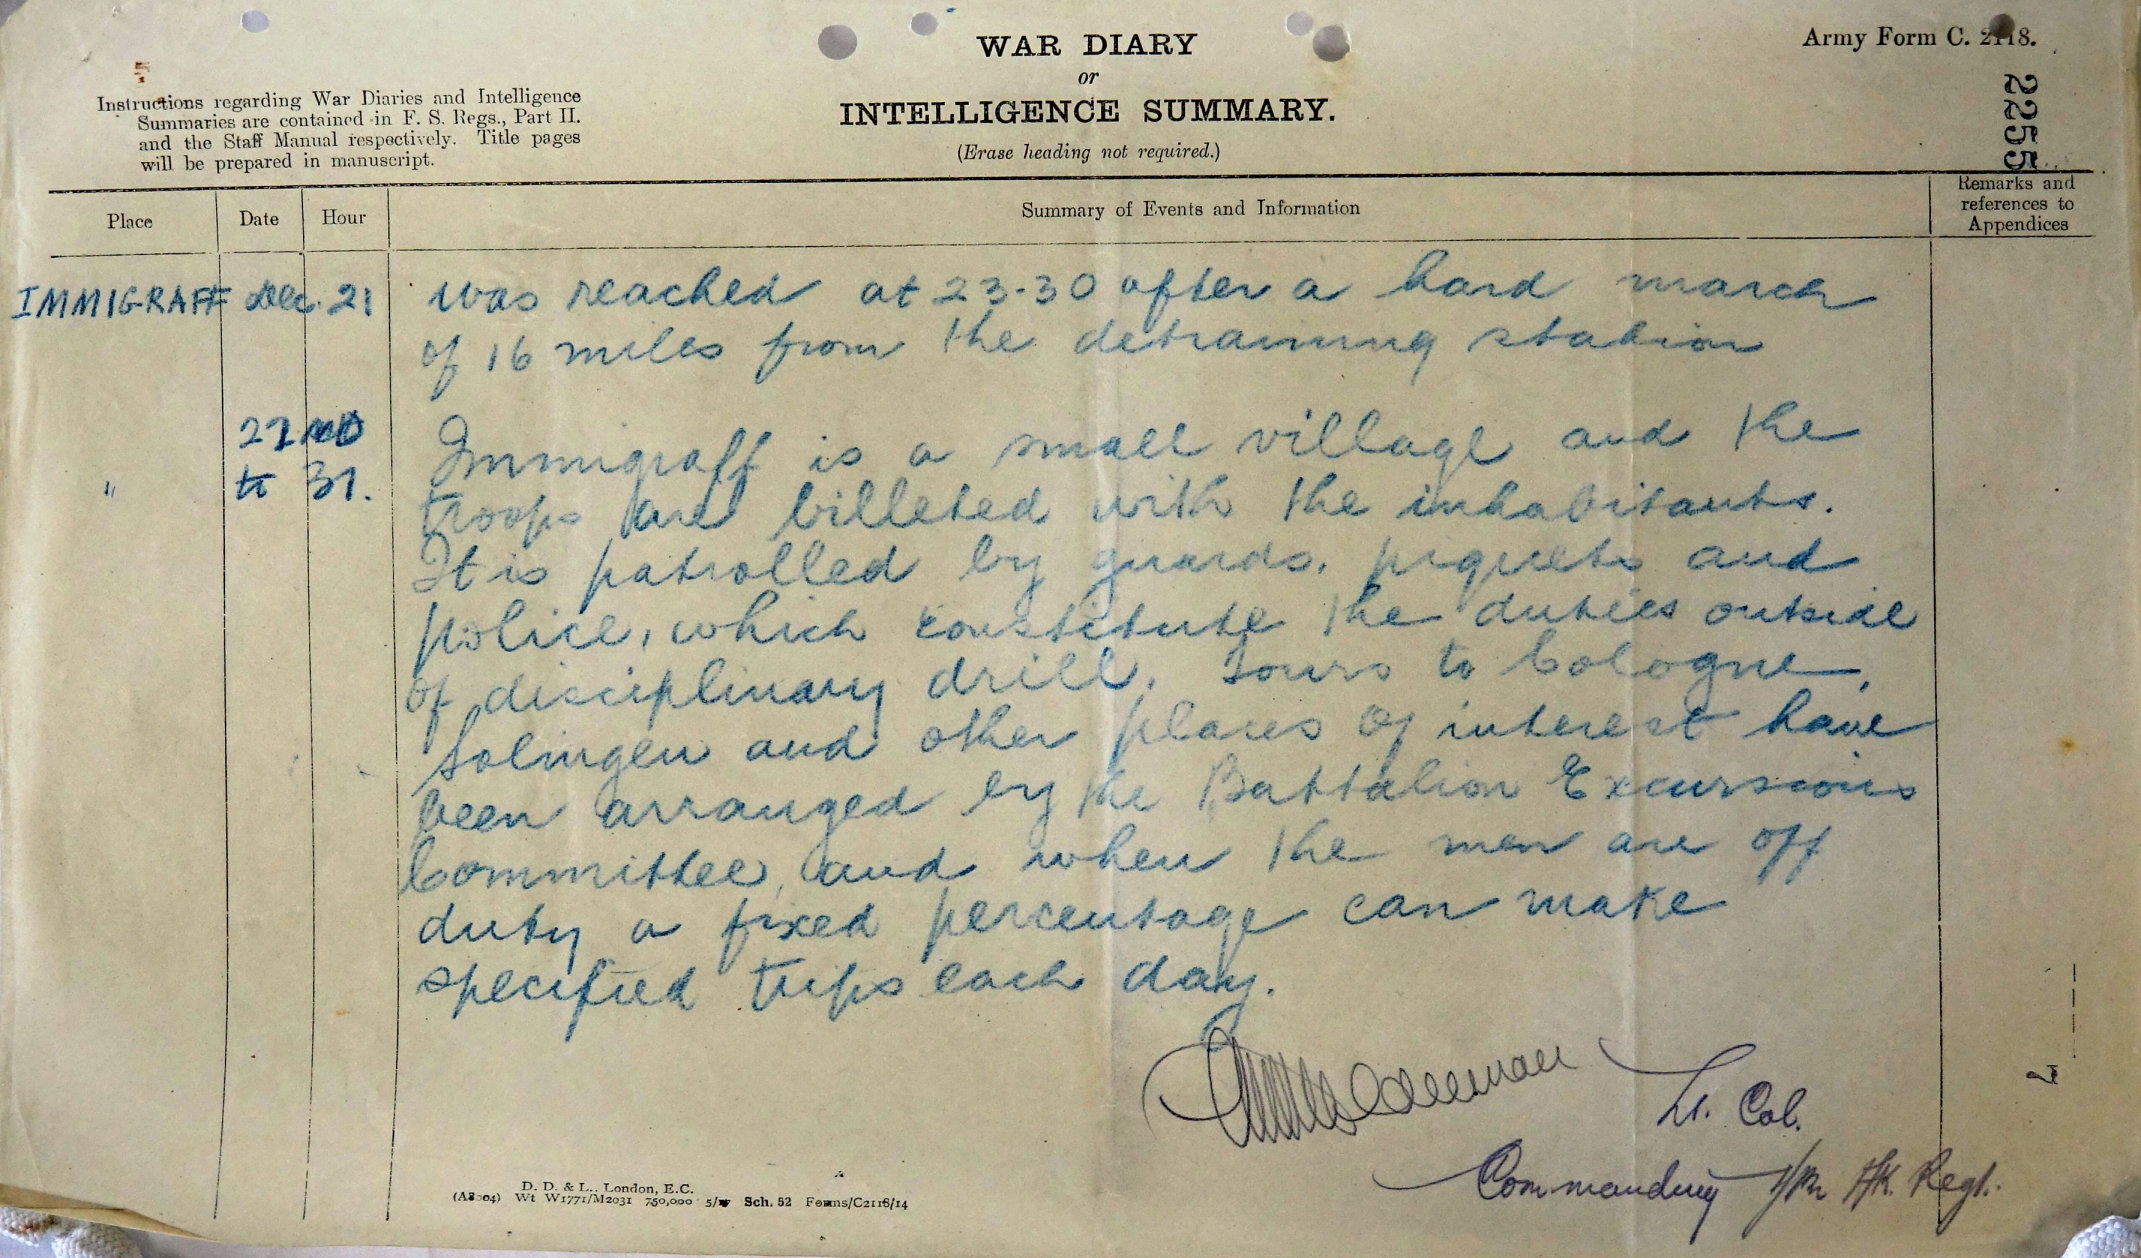 WAR DIARY
or
INTELLIGENCE SUMMARY.
(Erase heading not required.)
Army Form C. 2118.
2255
Instructions regarding War Diaries and Intelligence
Summaries are contained in F. S. Regs., Part II.
and the Staff Manual respectively. Title pages
will be prepared in manuscript.
Place Date Hour Summary of Events and Information Remarks and references to Appendices
IMMIGRAFF Dec. 21 was reached at 23-30 after a hard march
of 16 miles from the detraining station
22ND Immigraff is a small village and the
" to 31. troops are billeted with the inhabitants.
It is patrolled by guards, piquets and
police, which constitute the duties outside
of disciplinary drill. Tours to Cologne,
Solingen and other places of interest have
been arranged by the Battalion Excursions
Committee, and when the men are off
duty a fixed percentage can make
specified trips each day.
Lt. Col.
Commanding Regt.
D. D. & L., London, E.C.
Wt W1771/M2031 750,000 5/17 Sch. 52 Forms/C2118/14